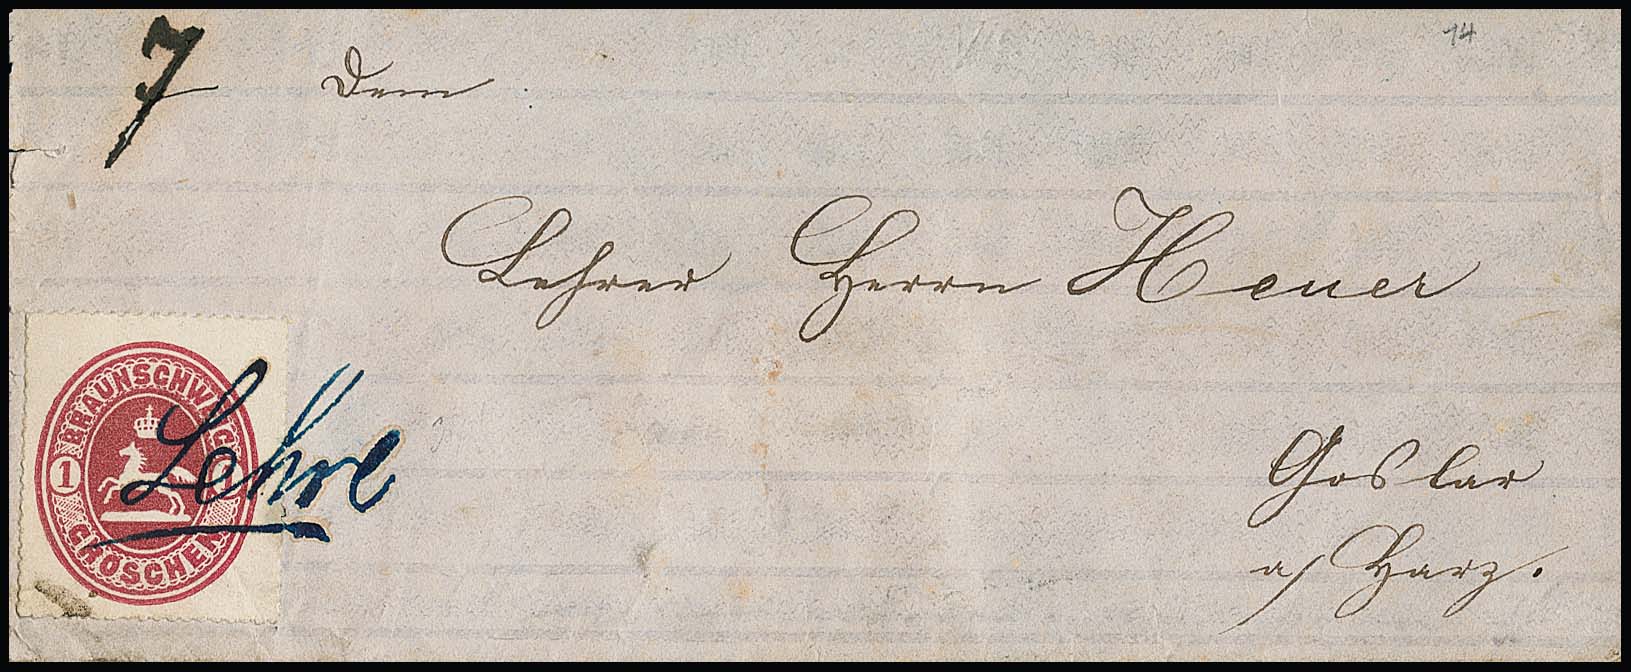 7
14
Dem
Lehrer Herrn Heuer
Goslar
a/ Harz.
BRAUNSCHWEIG
1 1
GROSCHEN
Lehre